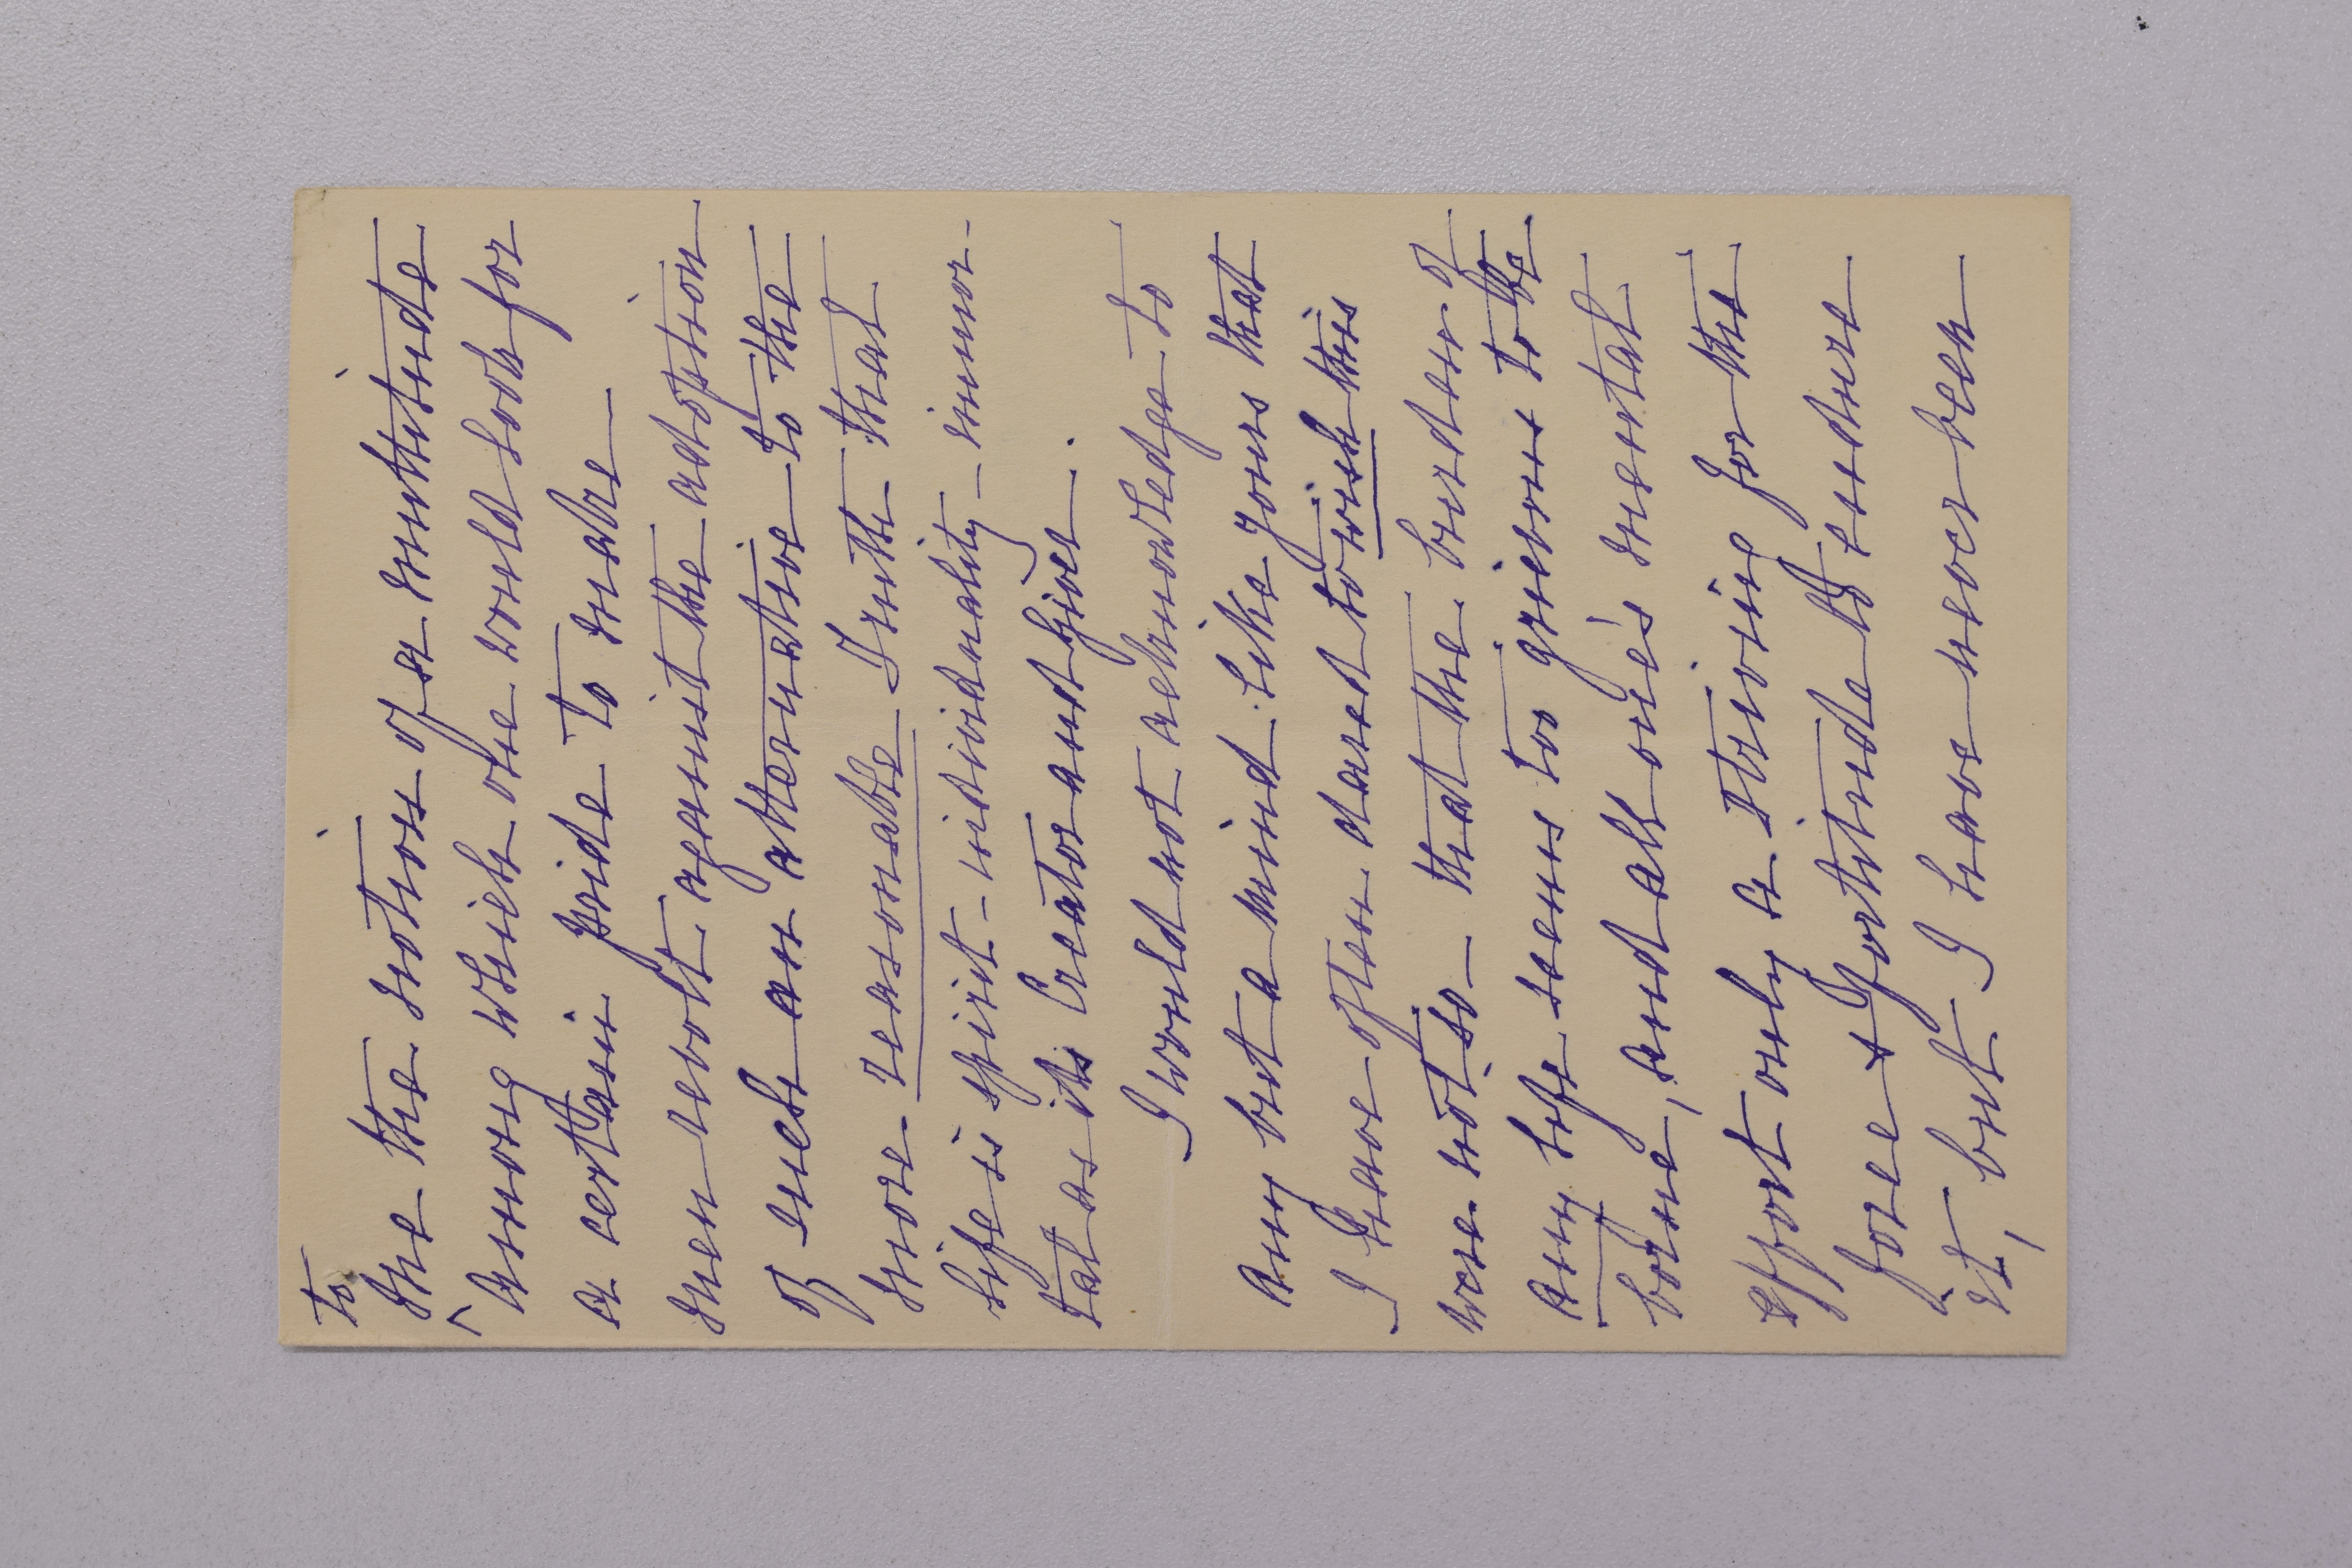 to
me the notion of a multitude
among which one would look for
a certain pride to make
men revolt against the adoption
of such an alternative to the
more reasonable Truth that
life is spirit – individuality – immor-
tal as its Creator and Giver.
I would not acknowledge to
any but a mind like yours that
I have often dared to wish this
were not so – that the burden of
any life seems too grievous to be
borne, and all one's mental
effort only a striving for the
force & fortitude to endure
it, but I have never been